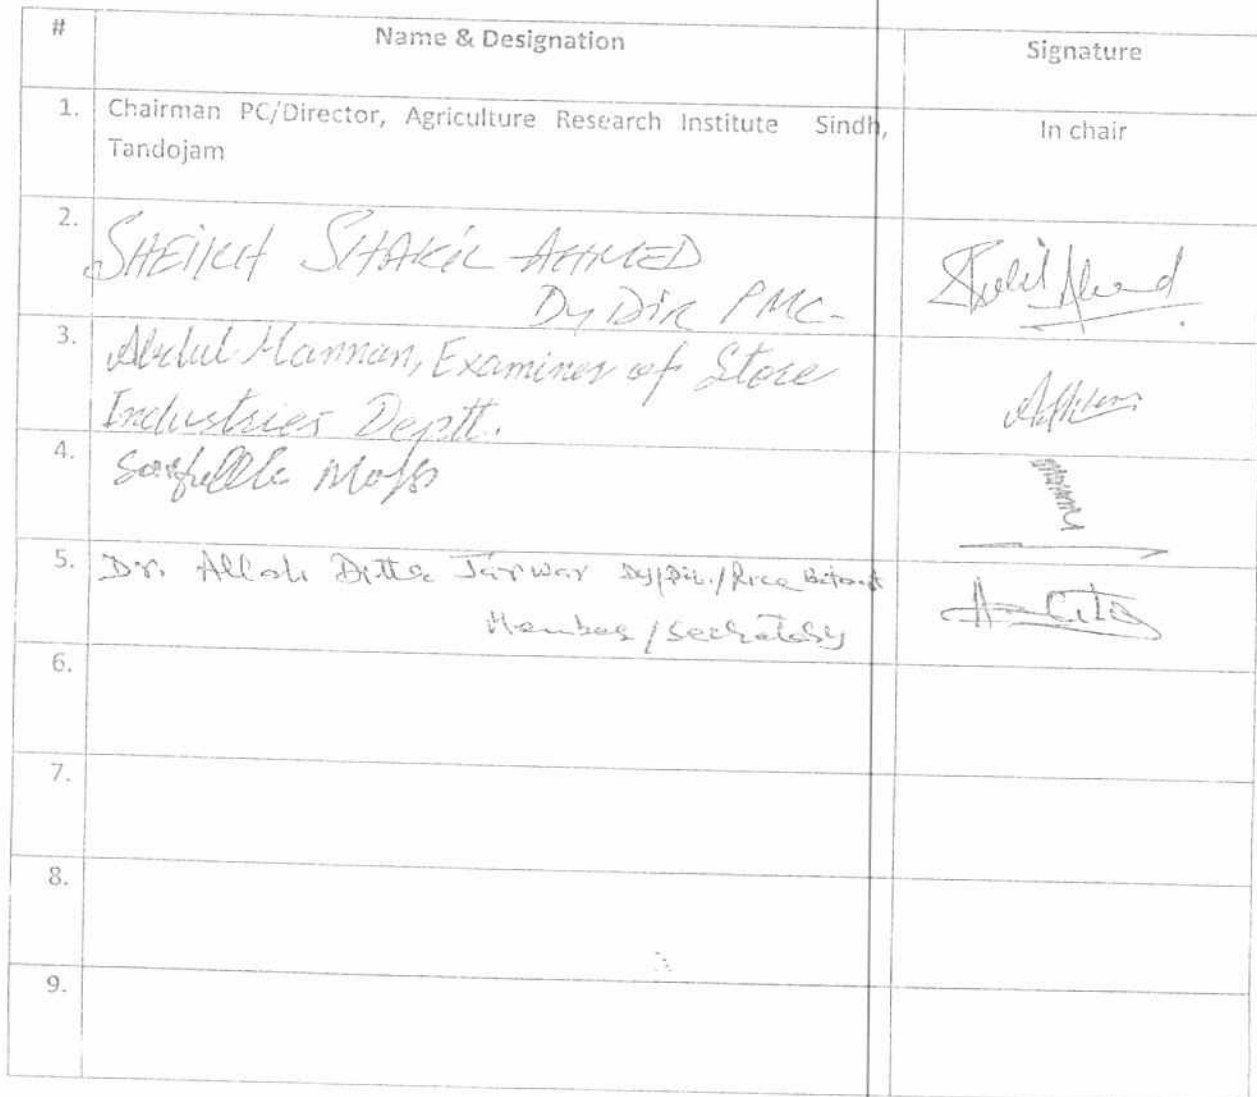 # Name & Designation Signature
1. Chairman PC/Director, Agriculture Research Institute Sindh, In chair
Tandojam
2. SHEIKH SHAKIL AHMED
Dy Dir PMC-
3. Abdul Hannan, Examiner of Store
Industries Deptt.
4.
5. Dr. Allah Ditta Jarwar Dy/Dir./Rice Botanist
Member/Secretary
6.
7.
8.
9.